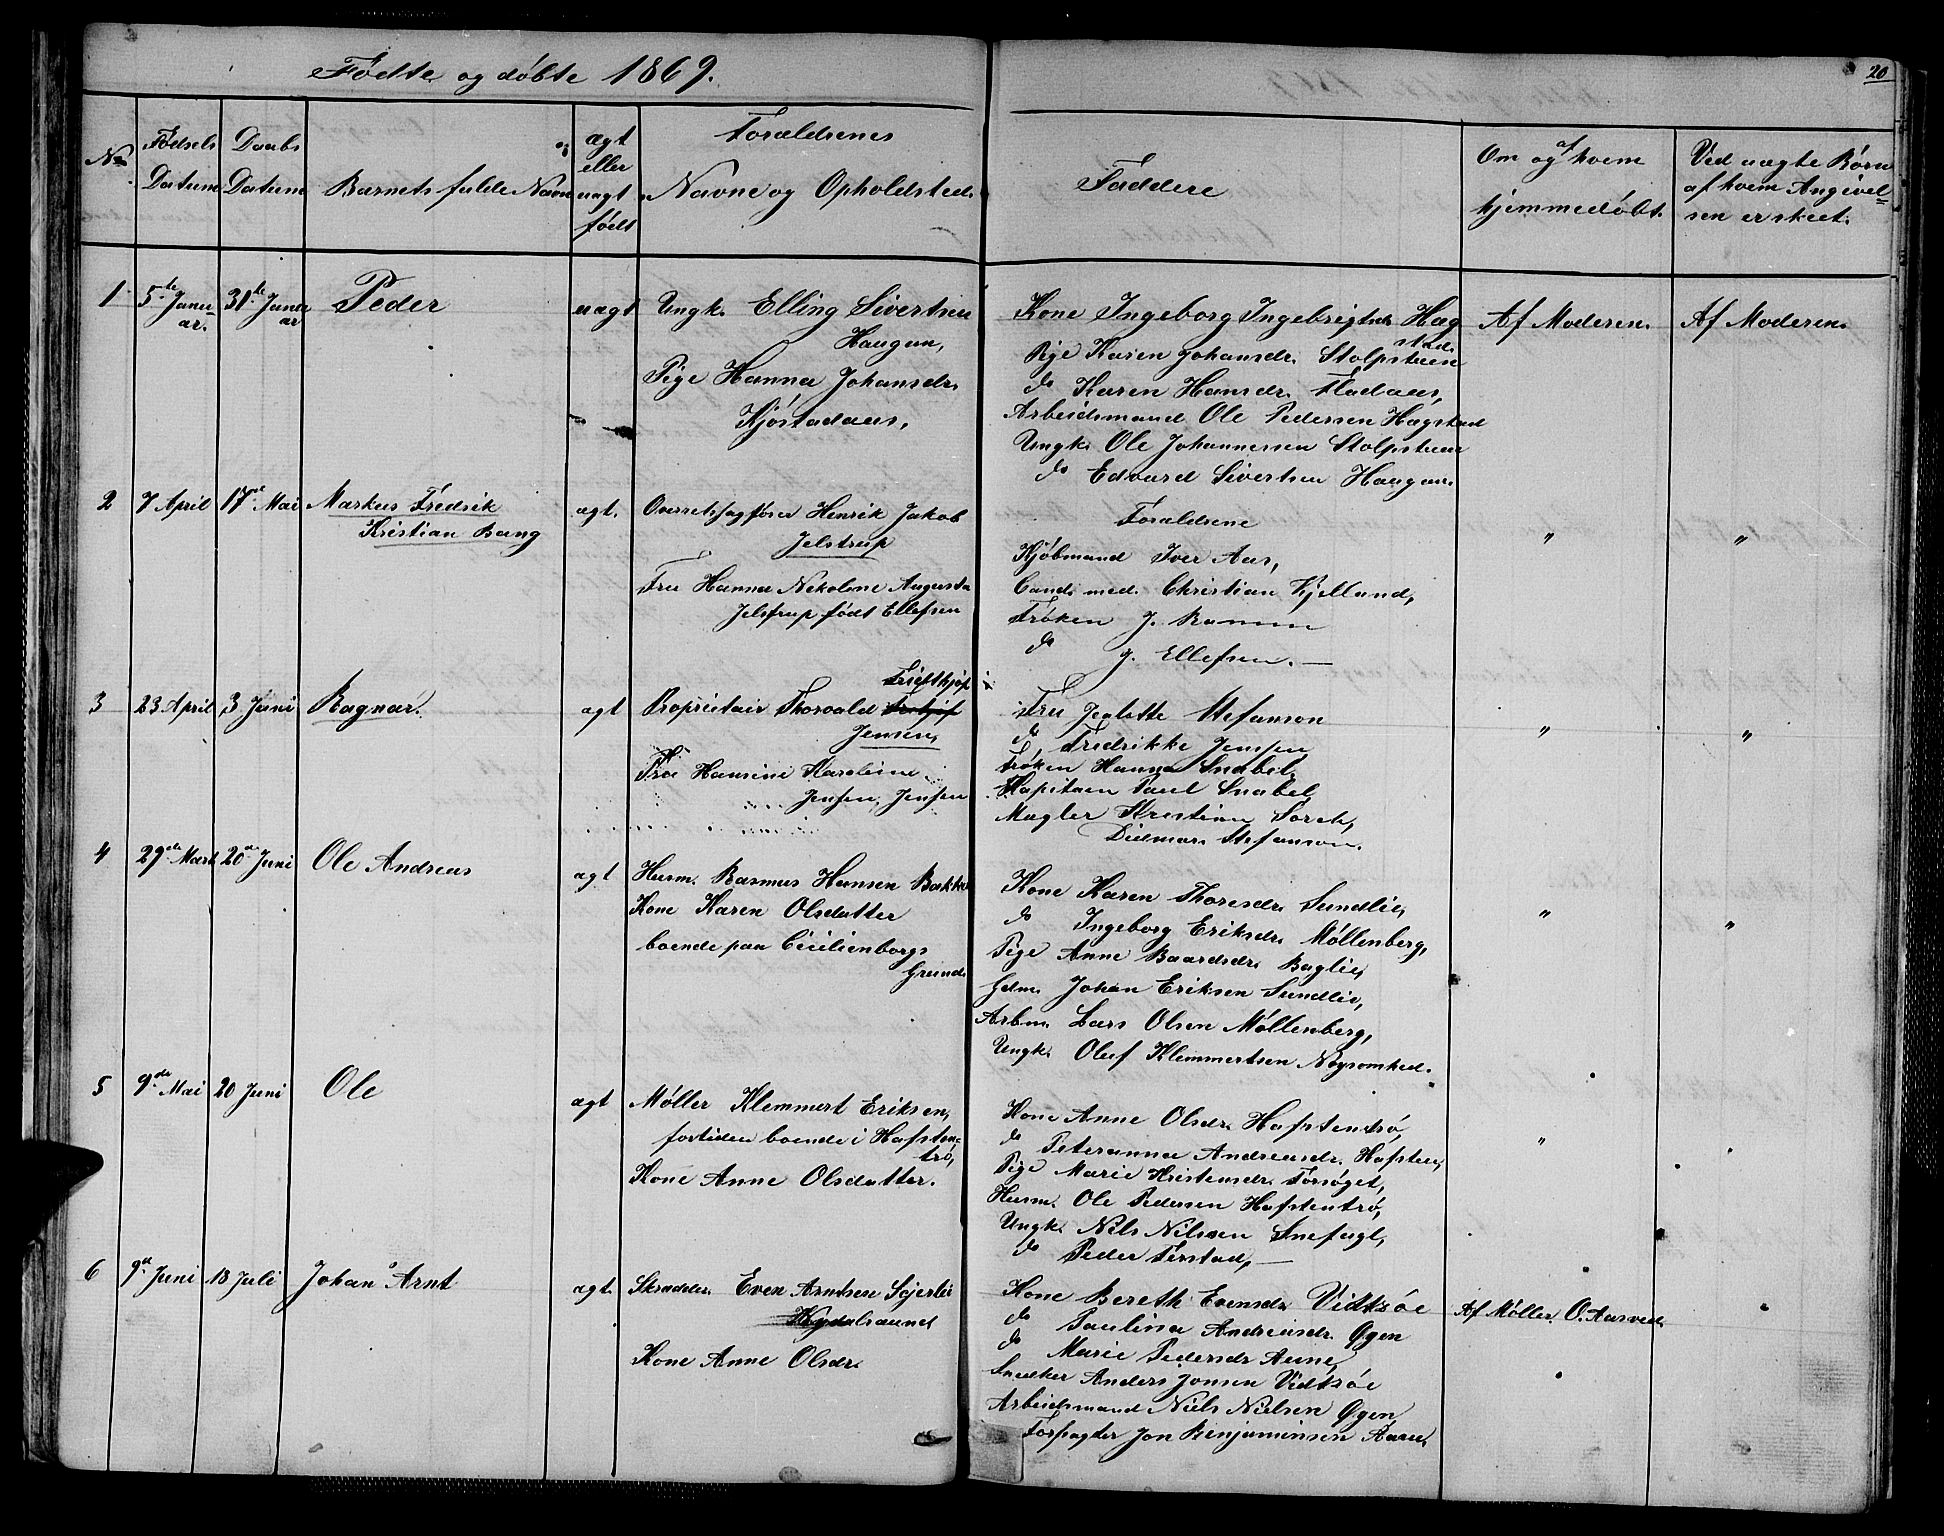 Fødte og døbte 1869.
20
No
Fødsels Datum
Daabs Datum
Barnets fulde Navn
ægt eller uægt født
Forældrenes Navne og Opholdsted.
Faddere
Om og af hvem hjemmedøbt.
Ved uægte Børn af hvem Angivel=sen er skeet.
1 5te Janu=ar. 31te Januar Peder uægt
Ungk. Elling Sivertsen
Haugan,
Pige Hanna Johansdr.
Kjøstadaas,
Kone Ingeborg Ingebrigtsdr. Hægstad.
Pige Karen Johansdr. Stolpsteen
do Karen Hansdr. Fladaas,
Arbeidsmand Ole Pedersen Hægstad
Ungk. Ole Johannessen Stolpsteen
do Edvard Sivertsen Haugan.
Af Moderen. Af Moderen.
2 7 April 17de Mai Markus Fredrik
Kristian Bang
ægt.
Overretssagfører Henrik Jakob
Jelstrup
Fru Hanna Nikoline Augusta
Jelstrup født Ellefsen
Forældrene
Kjøbmand Iver Aas,
Cand. med. Christian Kjelland,
Frøken J.
do J. Ellefsen. —
" "
3 23 April 3 Juni Ragnar. ægt
Proprietair Thorvald Fridthjof
Jensen,
Frue Hansine Karoline
Jensen, Jensen
Fru Jeatette Stefanson
do Fredrikke Jensen
Frøken Hanna Snabel,
Kapitain Paul Snabel
Mægler Kristian Torck,
Didmar Stefanson.
" "
4 29de Marts 20de Juni Ole Andreas ægt
Husm. Rasmus Hansen Bakke
Kone Karen Olsdatter
boende paa Cicilienborgs
Grund.
Kone Karen Thoresdr. Sundlie,
do Ingeborg Eriksdr. Møllenberg,
Pige Anne Baardsdr. Baglie,
Gdm. Johan Eriksen Sundlie,
Arbm. Lars Olsen Møllenberg,
Ungk. Oluf Klemmertsen Nøysomhed.
" "
5 9de Mai 20 Juni Ole ægt
Møller Klemmert Eriksen,
fortiden boende i Hafsten=
trø,
Kone Anne Olsdatter.
Kone Anne Olsdr. Hafstentrø,
do Peteranna Andreasdr. Hafsten,
Pige Marie Kristensdr. Forsøget,
Husm. Ole Pedersen Hafstentrø,
Ungk. Nils Nilssen Snefugl,
do Peder Ferstad, —
"
6 9de Juni 18 Juli Johan Arnt ægt.
Skrædder. Even Arntsen Sejerlie
Kone Anne Olsdr.
Kone Bereth Evensdr. Vidtsøe
do Paulina Andreasdr. Øyen
do Marie Pedersdr. Aune,
Snedker Anders Jonsen Vidtsøe
Arbeidsmand Niels Nielsen Øyen,
Forpagter Jon Benjaminsen Aune,
Af Møller O. Aasved.